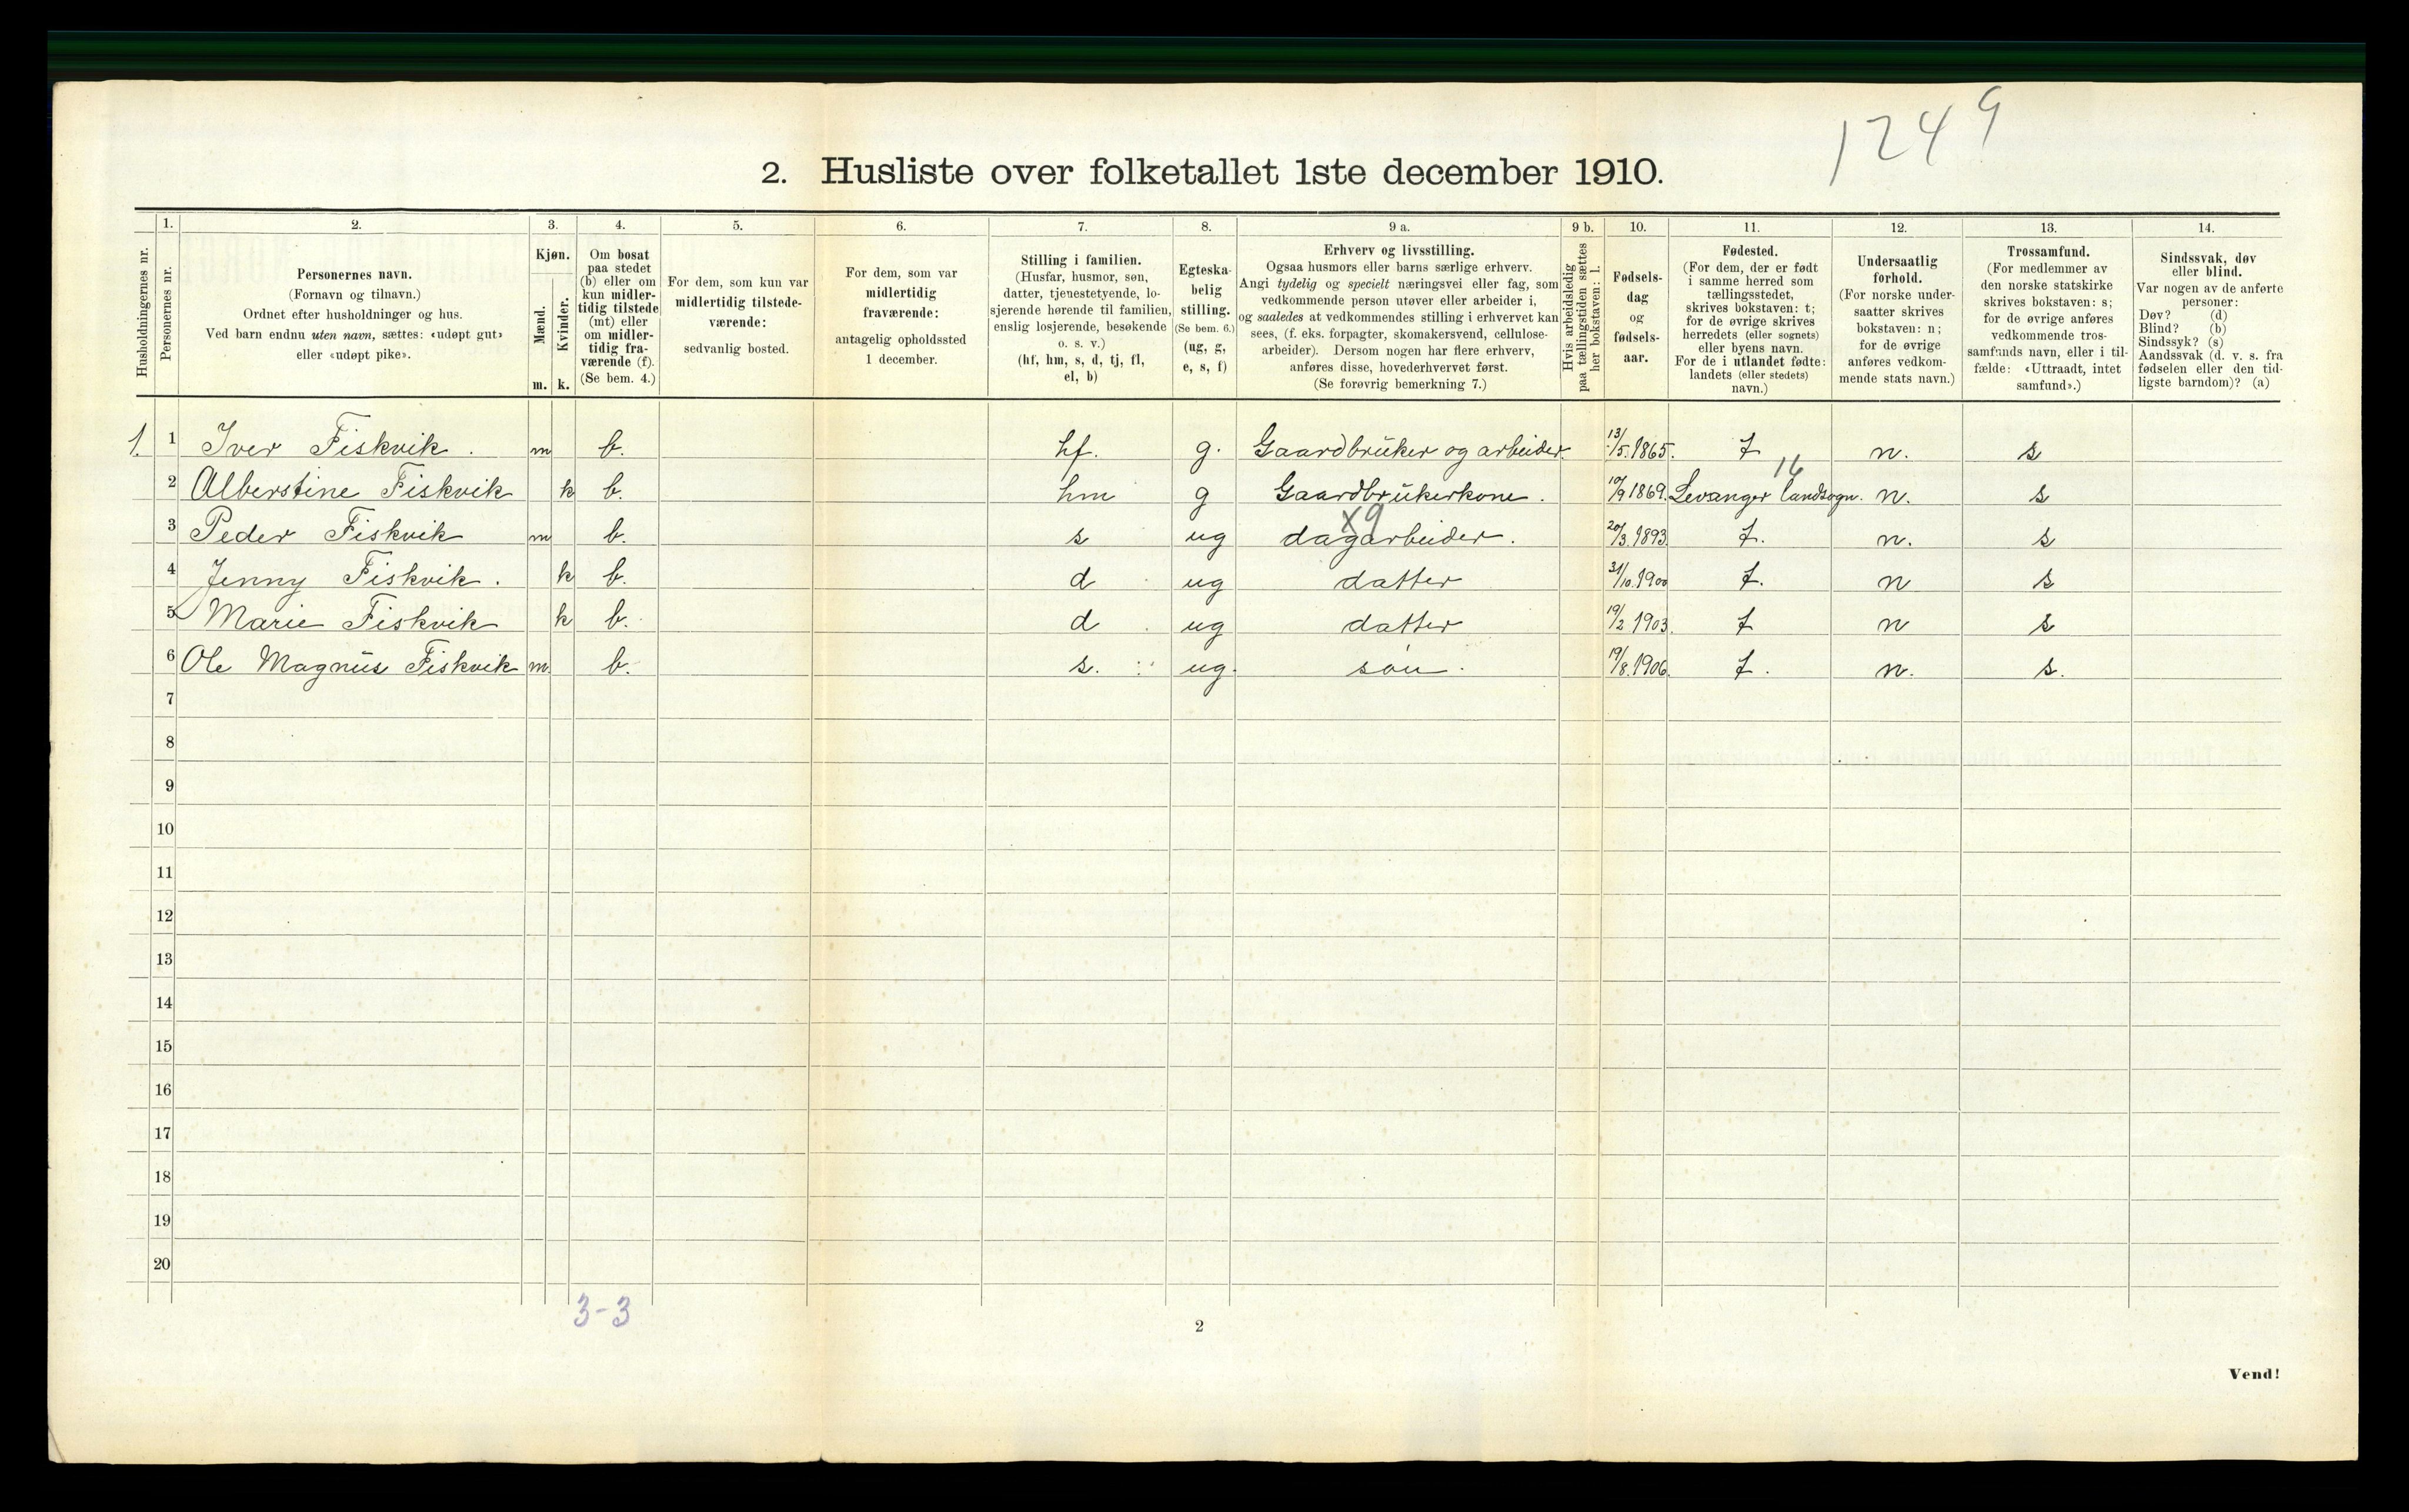 1249
2. Husliste over folketallet 1ste december 1910.
Husholdningernes nr.
1.
Personernes nr.
2.
Personernes navn.
(Fornavn og tilnavn.)
Ordnet efter husholdninger og hus.
Ved barn endnu uten navn, sættes: «udøpt gut»
eller «udøpt pike».
3.
Kjøn.
Mænd.
m.
Kvinder.
k.
4.
Om bosat
paa stedet
(b) eller om
kun midler-
tidig tilstede
(mt) eller
om midler-
tidig fra-
værende (f).
(Se bem. 4.)
5.
For dem, som kun var
midlertidig tilstede-
værende:
sedvanlig bosted.
6.
For dem, som var
midlertidig
fraværende:
antagelig opholdssted
1 december.
7.
Stilling i familien.
(Husfar, husmor, søn,
datter, tjenestetyende, lo-
sjerende hørende til familien,
enslig losjerende, besøkende
o. s. v.)
(hf, hm, s, d, tj, fl,
el, b)
8.
Egteska-
belig
stilling.
(Se bem. 6.)
(ug, g,
e, s, f)
9 a.
Erhverv og livsstilling.
Ogsaa husmors eller barns særlige erhverv.
Angi tydelig og specielt næringsvei eller fag, som
vedkommende person utøver eller arbeider i,
og saaledes at vedkommendes stilling i erhvervet kan
sees, (f. eks. forpagter, skomakersvend, cellulose-
arbeider). Dersom nogen har flere erhverv,
anføres disse, hovederhvervet først.
(Se forøvrig bemerkning 7.)
9 b.
Hvis arbeidsledig
paa tællingstiden sættes
her bokstaven: l.
10.
Fødsels-
dag
og
fødsels-
aar.
11.
Fødested.
(For dem, der er født
i samme herred som
tællingsstedet,
skrives bokstaven: t;
for de øvrige skrives
herredets (eller sognets)
eller byens navn.
For de i utlandet fødte:
landets (eller stedets)
navn.)
12.
Undersaatlig
forhold.
(For norske under-
saatter skrives
bokstaven: n;
for de øvrige
anføres vedkom-
mende stats navn.)
13.
Trossamfund.
(For medlemmer av
den norske statskirke
skrives bokstaven: s;
for de øvrige anføres
vedkommende tros-
samfunds navn, eller i til-
fælde: «Uttraadt, intet
samfund».)
14.
Sindssvak, døv
eller blind.
Var nogen av de anførte
personer:
Døv? (d)
Blind? (b)
Sindssyk? (s)
Aandssvak (d. v. s. fra
fødselen eller den tid-
ligste barndom)? (a)
1. 1 Iver Fiskvik. m b. hf. g. Gaardbrüker og arbeider. 13/5.1865. t n. s
16
2 Alberstine Fiskvik k b. hm g Gaardbrükerkone. 10/9 1869. Levanger landsogn. n. s
X9
3 Peder Fiskvik m b. s ug dagarbeider. 20/3.1893. t. n. s
4 Jenny Fiskvik. k b. d ug datter 31/10.1900 t. n s
5 Marie Fiskvik k b. d ug datter 19/2 1903. t n s
6 Ole Magnüs Fiskvik m. b. s. ug. søn. 19/8.1906. t. n. s.
7
8
9
10
11
12
13
14
15
16
17
18
19
20
3-3
2
Vend!